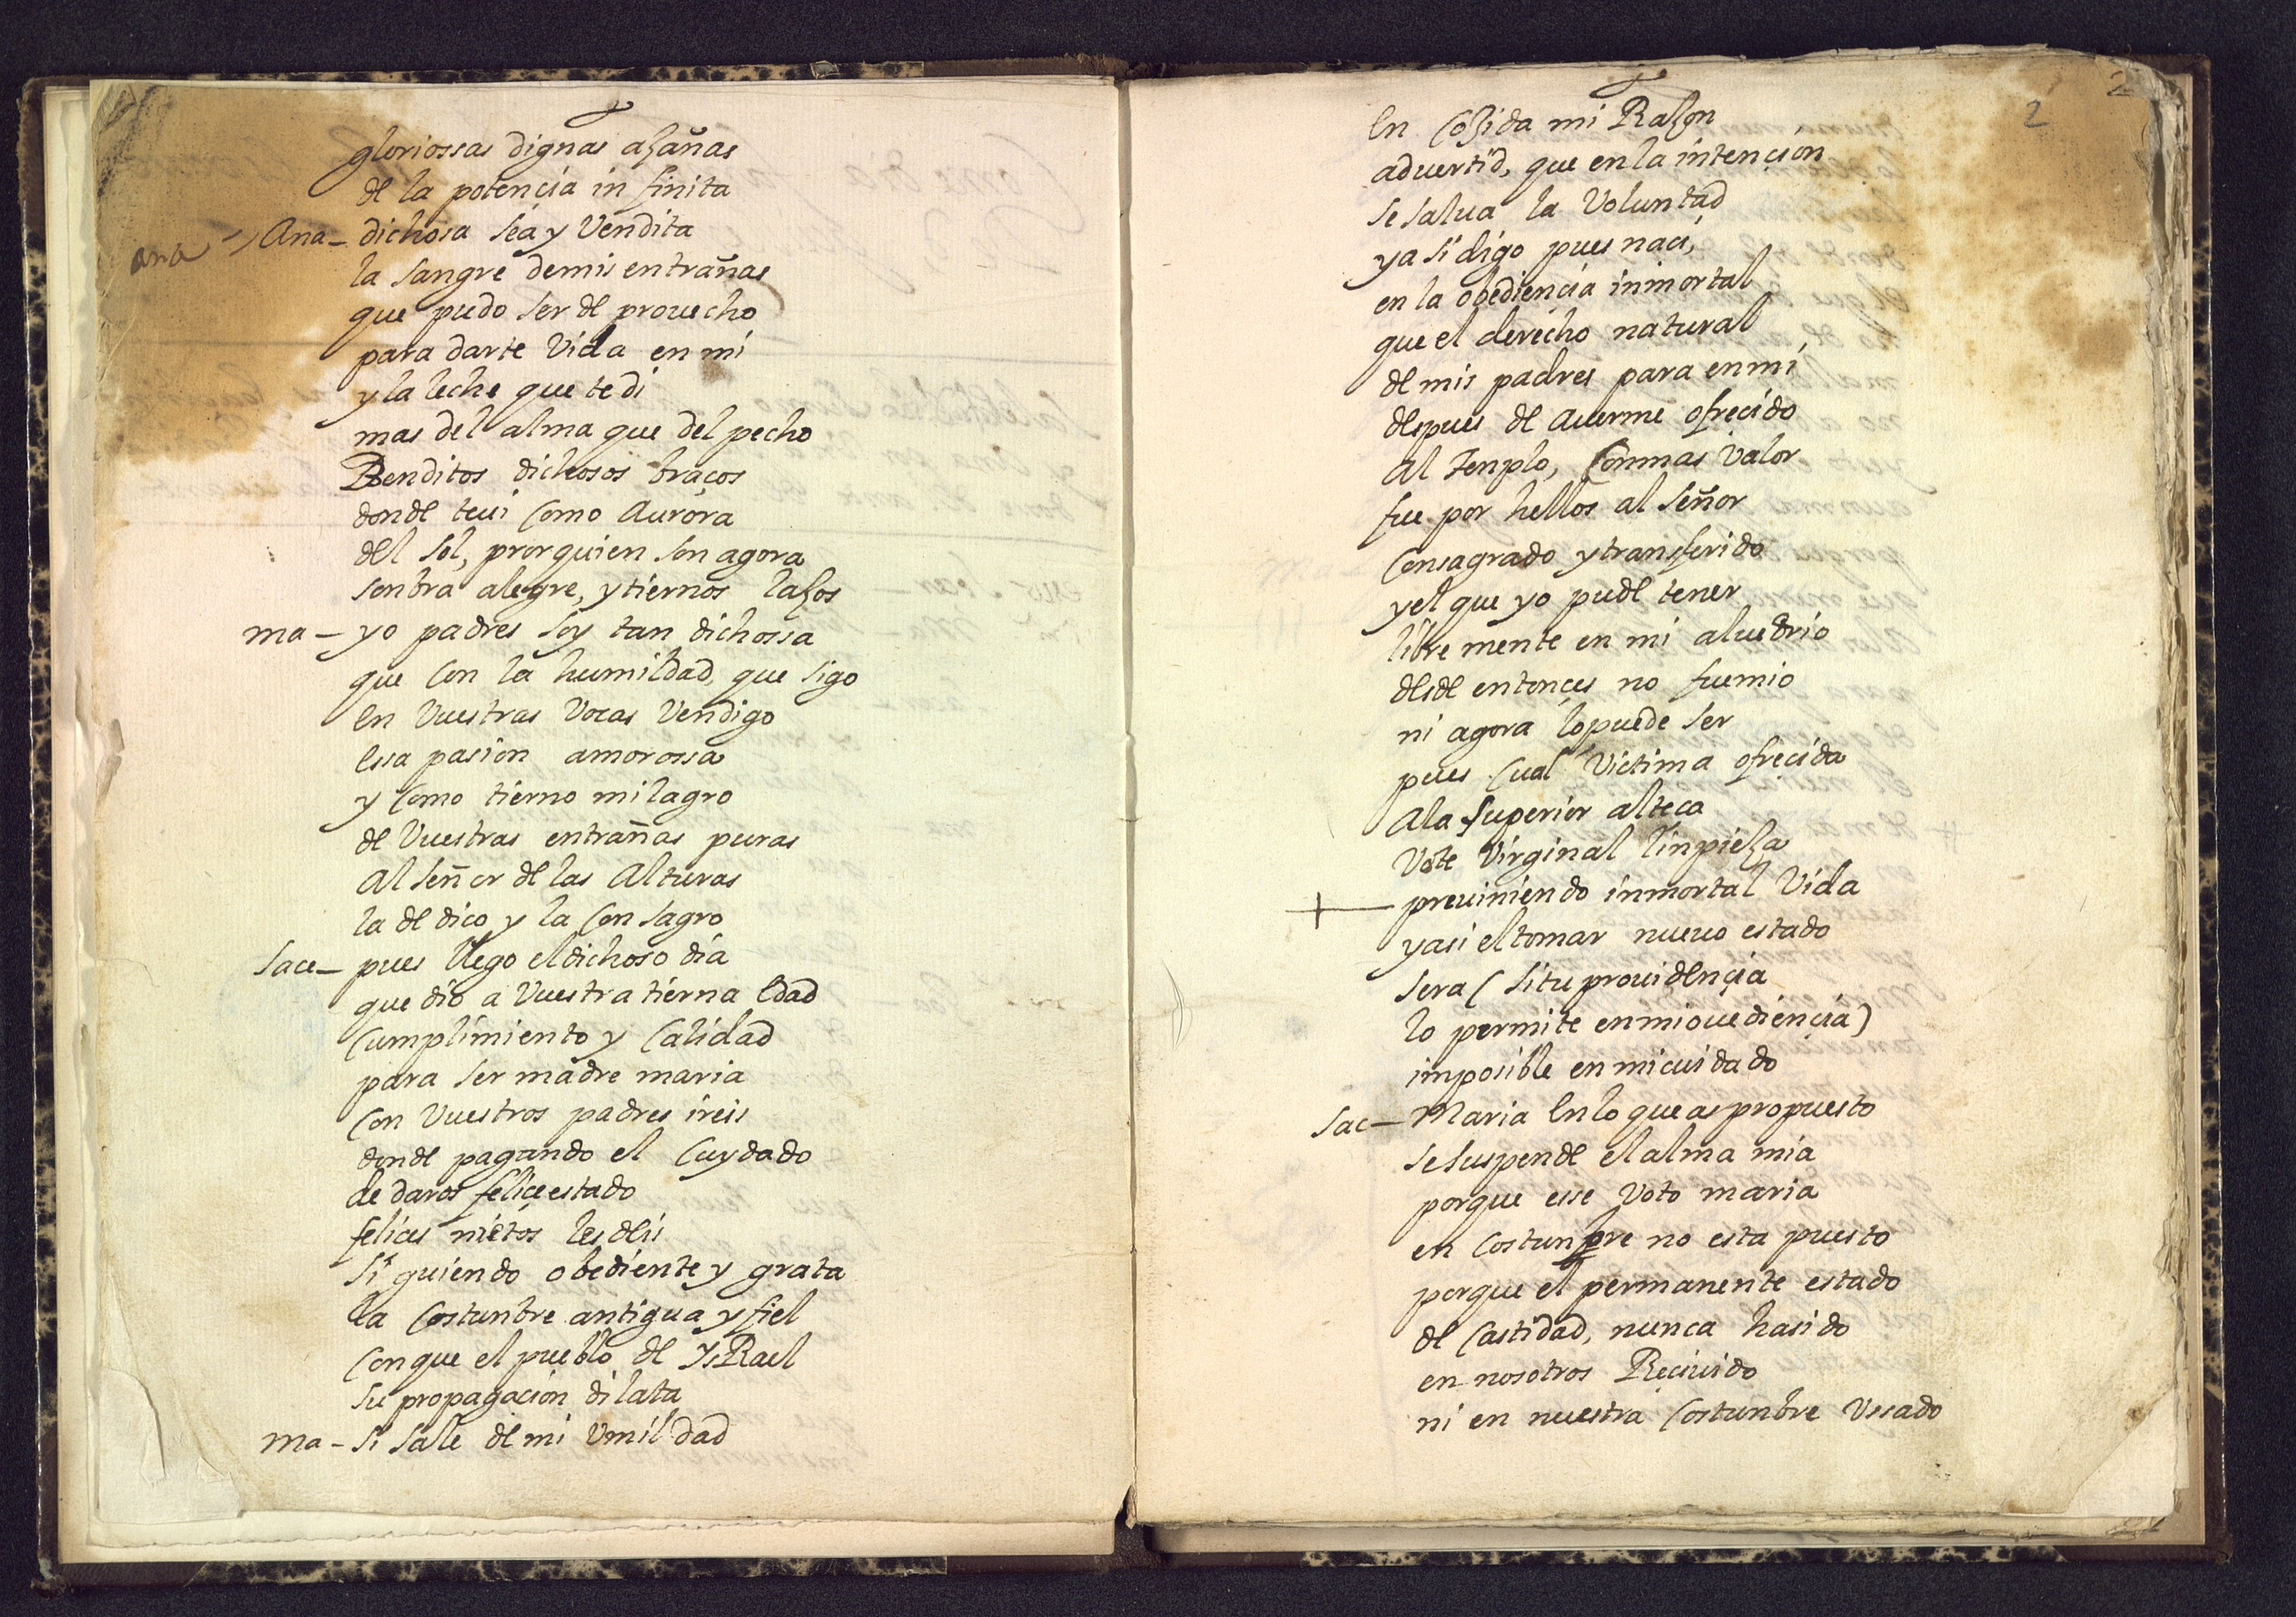 gloriossas dignas açañas
de la potençia in finita
ana Ana - dichosa sea y Vendita
la sangre demis entrañas
que pudo ser de prouecho
para darte Vida en mi
y la leche que te di
mas del alma que del pecho
Benditos dichosos braços
donde teui Como Aurora
del sol, prorquien son agora
sonbra alegre, y tiernos laços
ma - yo padres soy tan dichossa
que Con la humildad, que sigo
En Vuestras Vocas Vendigo
Essa pasion amorossa
y Como tierno milagro
de Vuestras entrañas puras
Al señor de las Alturas
la de dico y la Con sagro
Sace - pues llego eldichoso dia
que dio a Vuestra tierna Edad
Cumplimiento y Calidad
para ser madre maria
Con Vuestros padres ireis
donde pagando el Cuydado
de daros feliçe estado
felices nietos les deis
si guiendo obediente y grata
la Costunbre antigua y fiel
Con que el pueblo de YsRael
su propagaçion dilata
ma - si sale de mi Vmildad
2
2
En Coxida mi Raçon
aduertid, que en la intençion
se salua la Voluntad
y a si digo pues naçi,
en la obediençia inmortal
que el derecho natural
de mis padres para en mi
despues de Auerme ofreçido
Al Tenplo, Conmas Valor
fue por hellos al señor
Consagrado y transferido
y el que yo pude tener
libre mente en mi aluedrio
desde entonçes no fuemio
ni agora lopuede ser
pues Cual Victima ofreçida
A la superior alteça
Vote Virginal linpieça
preuiniendo inmortal Vida
y asi eltomar nueuo estado
sera ( situ prouidençia
lo permite enmiouediençia)
imposible en micuidado
Sac - Maria En lo que as propuesto
se suspende el alma mia
porque esse Voto maria
en Costunbre no esta puesto
porque el permanente estado
de Castidad, nunca hasido
en nosotros Reçiuido
ni en nuestra Costunbre Vssado